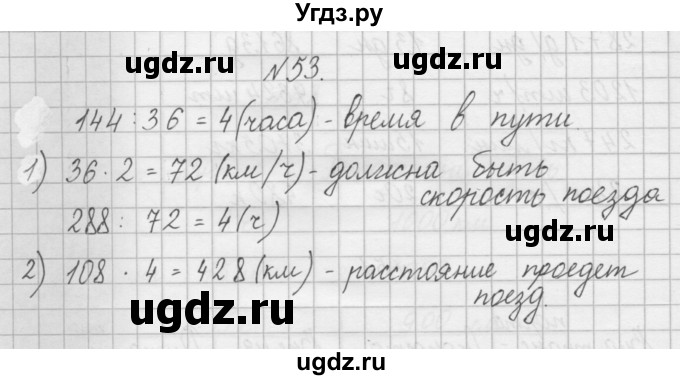 Угдз.ру
ugdz.ru ugdz.ru
№53.
144 : 36 = 4 (часа) - время в пути
1) 36 · 2 = 72 (км/ч) - должна быть
ugdz.ru ugdz.ru
скорость поезда
288 : 72 = 4 (ч)
2) 108 · 4 = 428 (км) - расстояние проедет
поезд.
ugdz.ru ugdz.ru
ugdz.ru